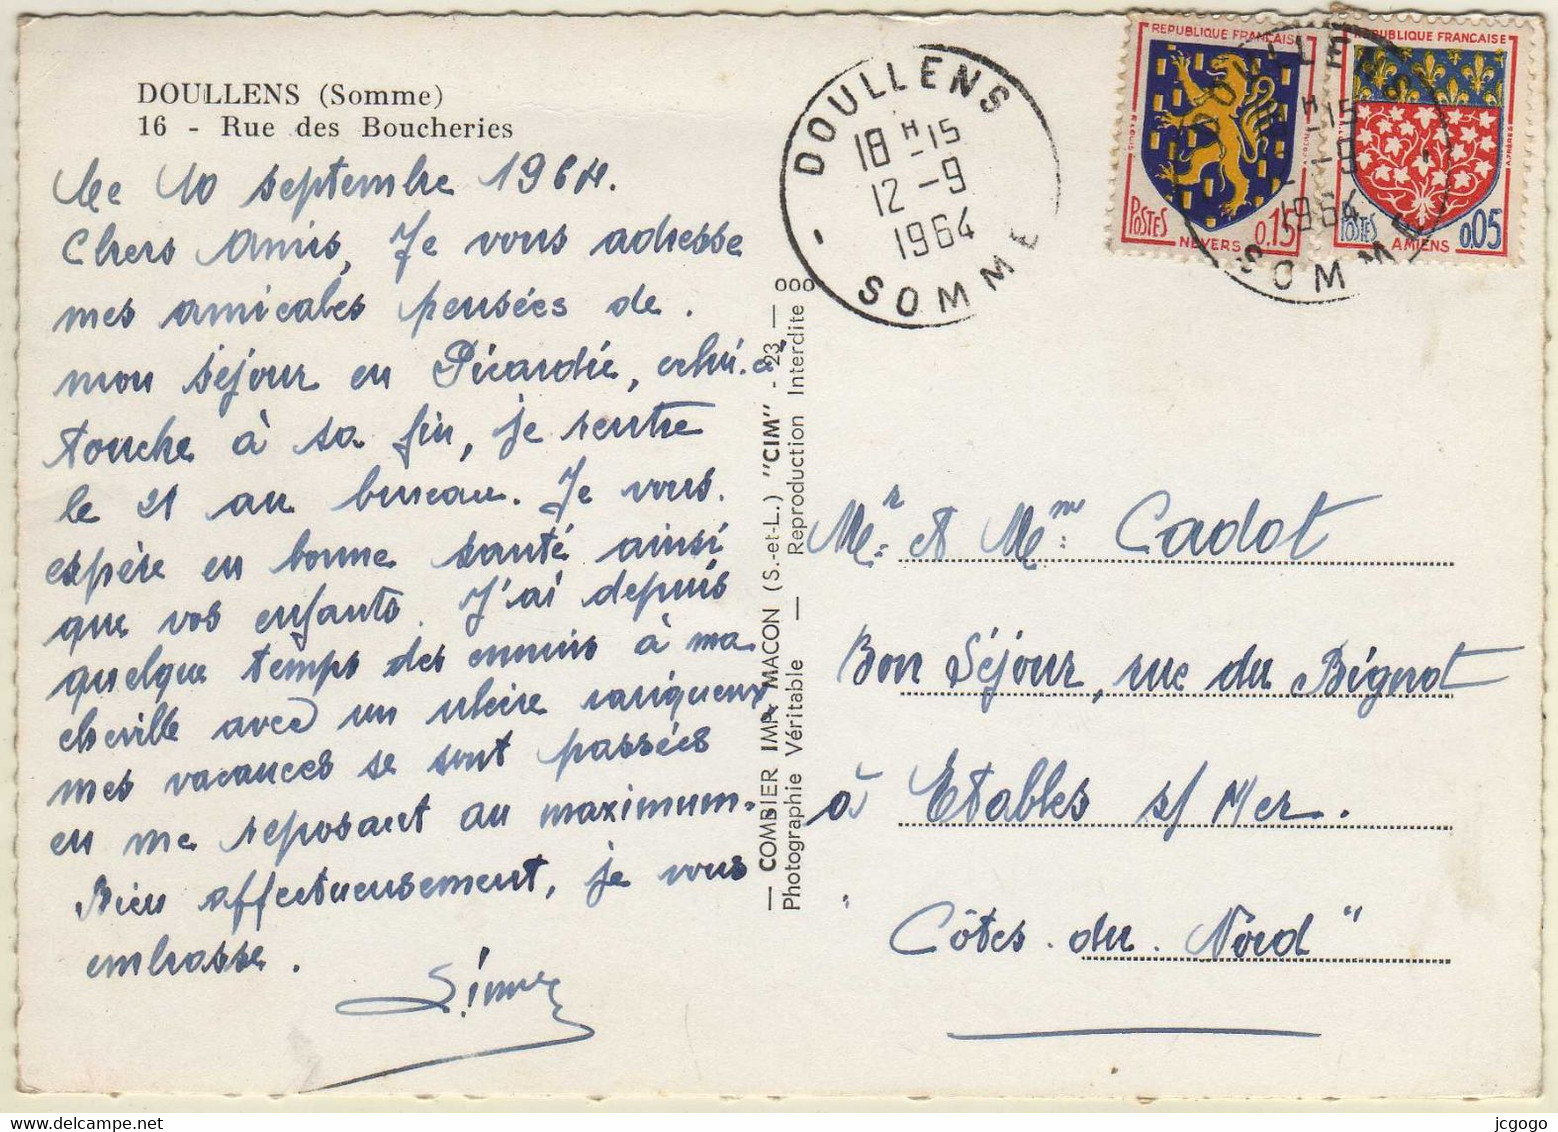 DOULLENS (Somme)
16 - Rue des Boucheries
Le 10 septembre 1964.
Chers Amis, Je vous adresse
mes amicales pensées de.
mon séjour en Picardie, celui.ci
touche à sa fin, je rentre
le 21 au bureau. Je vous.
espère en bonne santé ainsi
que vos enfants. J'ai depuis
quelque temps des ennuis à ma
cheville avec un ulcère variqueux
mes vacances se sont passées
en me reposant au maximum.
Bien affectueusement, je vous
embrasse.
— COMBIER IMP. MACON (S.-et-L.) "CIM" - 23 — ooo
Photographie Véritable — Reproduction Interdite
DOULLENS
18 H -15
12 -9
1964
SOMME
REPUBLIQUE FRANÇAISE
POSTES
NEVERS
0.15
REPUBLIQUE FRANÇAISE
POSTES
AMIENS
0,05
DOULLENS
H -15
-9
1964
SOMME
Mr: et Mme: Cadot
Bon Séjour, rue du Bignot
à Etables s/ Mer.
"Côtes. du. Nord"
jcgogo